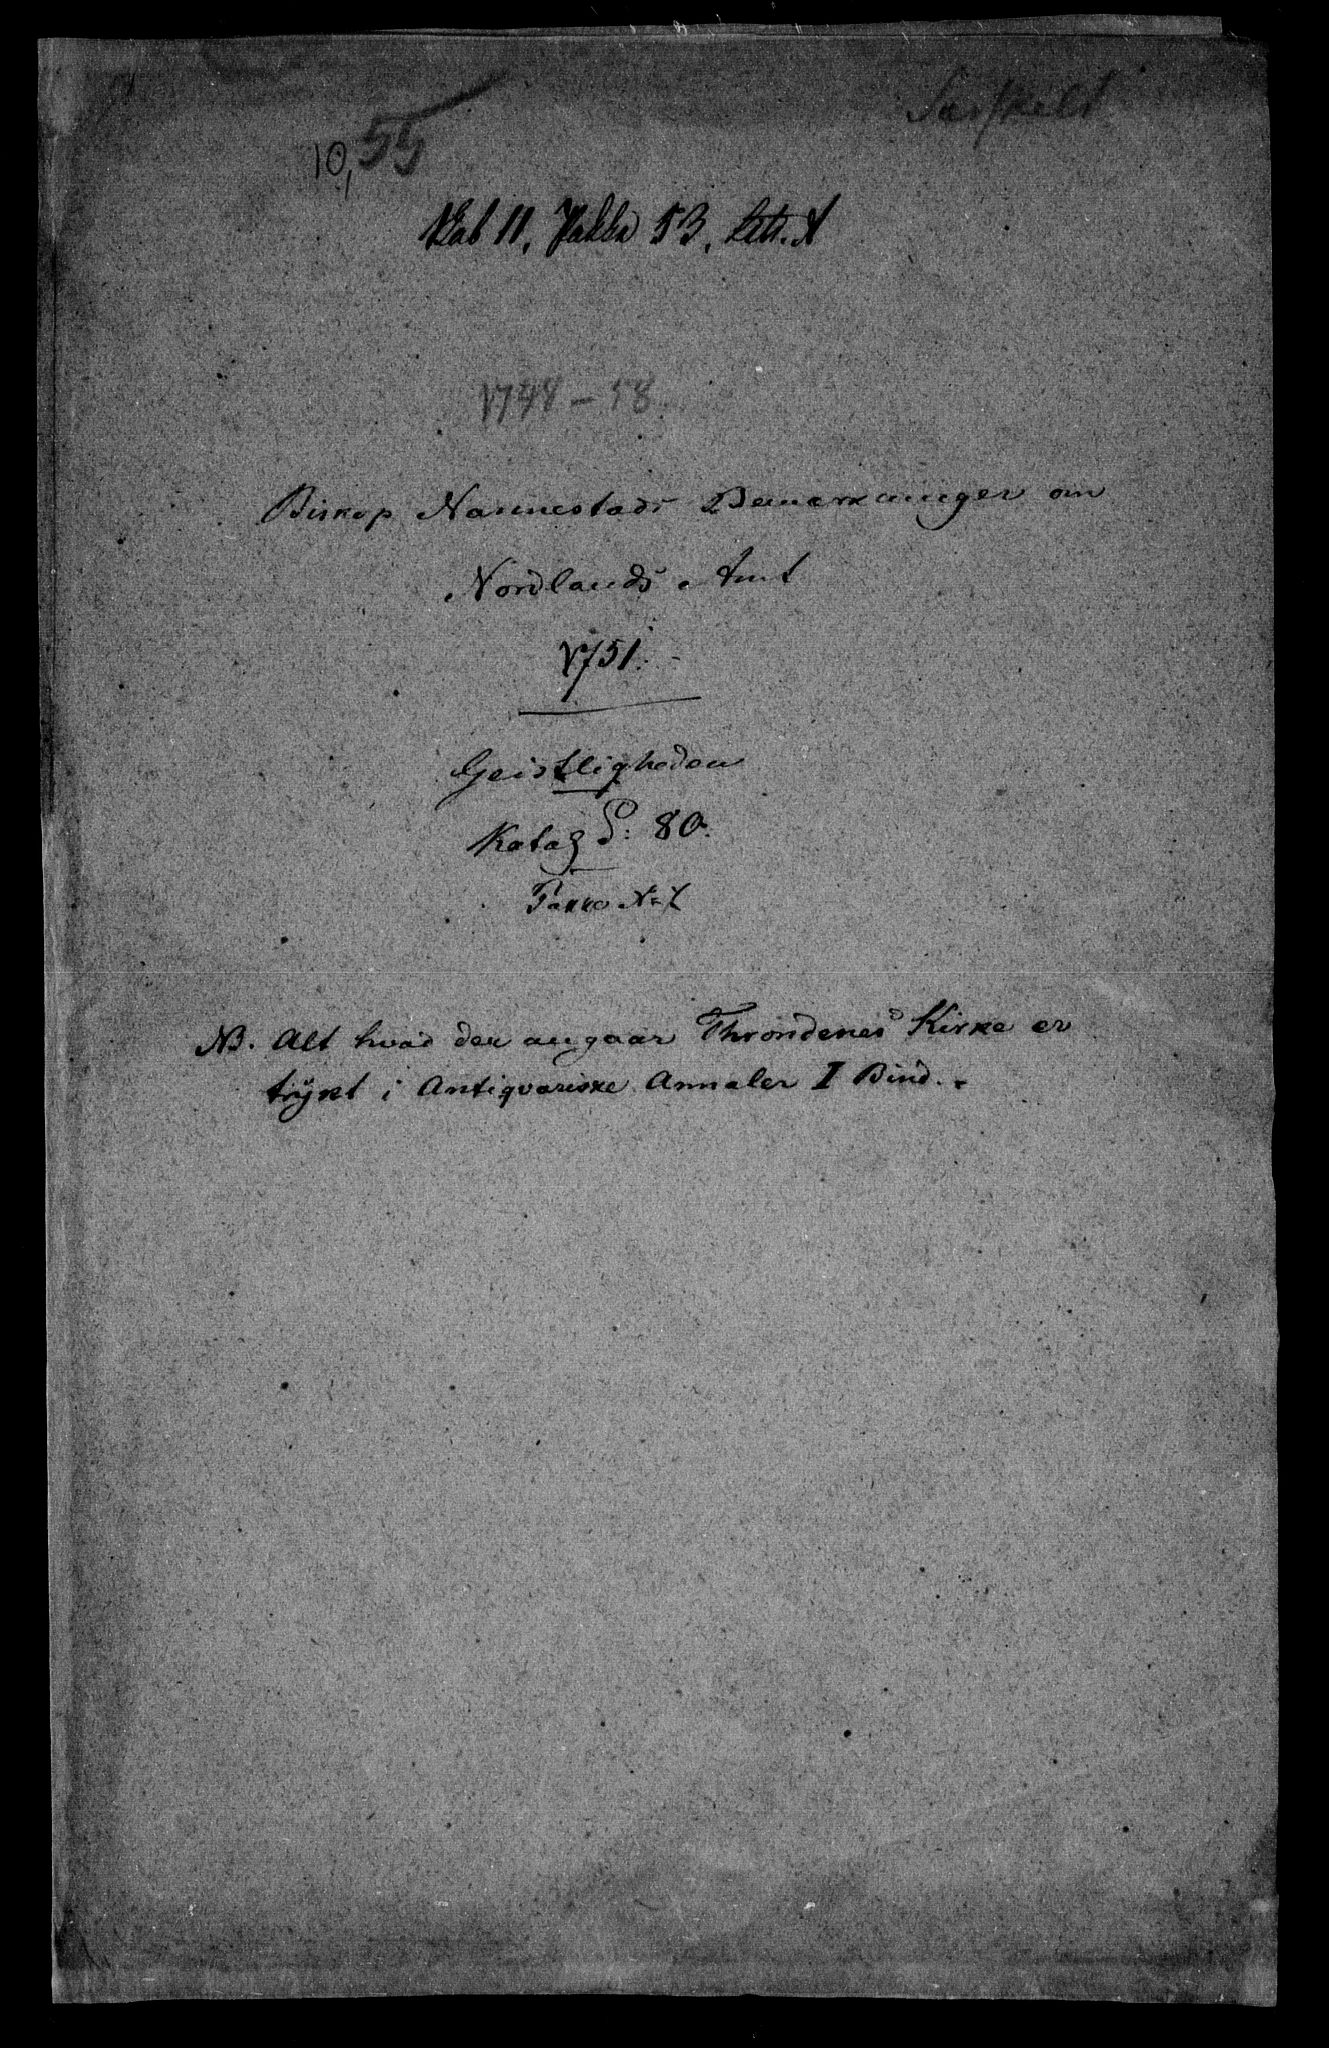 Særskilt
10, 55
Skab 11, Pakke 53, Litr. A
1748 - 58.
Biskop Nannestads Bemærkninger om
Nordlands Amt
1751.
Geistligheden
Katag P: 80.
Pakke No 1
NB. Alt hvad der angaar Throndenes Kirke er
trÿkt i Antiqvariske Annaler I Bind.